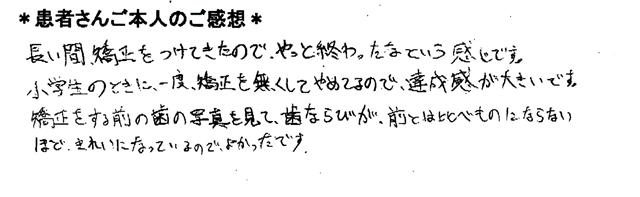 ＊患者さんご本人のご感想＊
長い間、矯正をつけてきたので、やっと終わったなという感じです。
小学生のときに、一度、矯正を無くしてやめてるので、達成感が大きいです。
矯正をする前の歯の写真を見て、歯ならびが、前とは比べものにならない
ほど、きれいになっているので、よかったです。